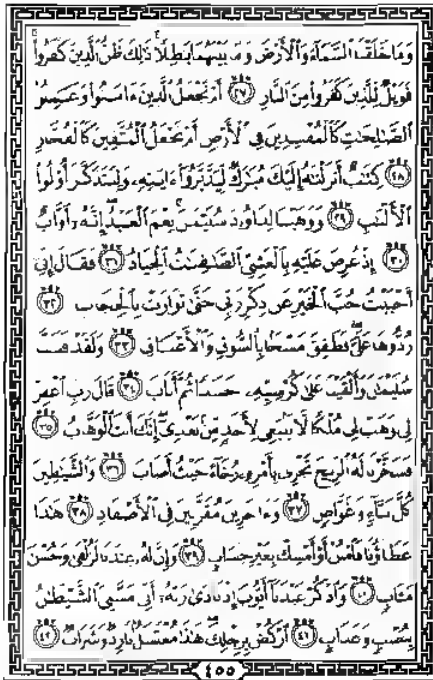 وَمَا خَلَقْنَا السَّمَاءَ وَالْأَرْضَ وَمَا بَيْنَهُمَا بَاطِلًا ذَٰلِكَ ظَنُّ الَّذِينَ كَفَرُوا
فَوَيْلٌ لِلَّذِينَ كَفَرُوا مِنَ النَّارِ ٢٧ أَمْ نَجْعَلُ الَّذِينَ ءَامَنُوا وَعَمِلُوا
الصَّالِحَاتِ كَالْمُفْسِدِينَ فِي الْأَرْضِ أَمْ نَجْعَلُ الْمُتَّقِينَ كَالْفُجَّارِ
٢٨ كِتَابٌ أَنْزَلْنَاهُ إِلَيْكَ مُبَارَكٌ لِيَدَّبَّرُوا ءَايَاتِهِ وَلِيَتَذَكَّرَ أُولُوا
الْأَلْبَابِ ٢٩ وَوَهَبْنَا لِدَاوُدَ سُلَيْمَانَ نِعْمَ الْعَبْدُ إِنَّهُ أَوَّابٌ
٣٠ إِذْ عُرِضَ عَلَيْهِ بِالْعَشِيِّ الصَّافِنَاتُ الْجِيَادُ ٣١ فَقَالَ إِنِّي
أَحْبَبْتُ حُبَّ الْخَيْرِ عَنْ ذِكْرِ رَبِّي حَتَّىٰ تَوَارَتْ بِالْحِجَابِ ٣٢
رُدُّوهَا عَلَيَّ فَطَفِقَ مَسْحًا بِالسُّوقِ وَالْأَعْنَاقِ ٣٣ وَلَقَدْ فَتَنَّا
سُلَيْمَانَ وَأَلْقَيْنَا عَلَىٰ كُرْسِيِّهِ جَسَدًا ثُمَّ أَنَابَ ٣٤ قَالَ رَبِّ اغْفِرْ
لِي وَهَبْ لِي مُلْكًا لَا يَنْبَغِي لِأَحَدٍ مِنْ بَعْدِي إِنَّكَ أَنْتَ الْوَهَّابُ ٣٥
فَسَخَّرْنَا لَهُ الرِّيحَ تَجْرِي بِأَمْرِهِ رُخَاءً حَيْثُ أَصَابَ ٣٦ وَالشَّيَاطِينَ
كُلَّ بَنَّاءٍ وَغَوَّاصٍ ٣٧ وَءَاخَرِينَ مُقَرَّنِينَ فِي الْأَصْفَادِ ٣٨ هَٰذَا
عَطَاؤُنَا فَامْنُنْ أَوْ أَمْسِكْ بِغَيْرِ حِسَابٍ ٣٩ وَإِنَّ لَهُ عِنْدَنَا لَزُلْفَىٰ وَحُسْنَ
مَآبٍ ٤٠ وَاذْكُرْ عَبْدَنَا أَيُّوبَ إِذْ نَادَىٰ رَبَّهُ أَنِّي مَسَّنِيَ الشَّيْطَانُ
بِنُصْبٍ وَعَذَابٍ ٤١ ارْكُضْ بِرِجْلِكَ هَٰذَا مُغْتَسَلٌ بَارِدٌ وَشَرَابٌ ٤٢
٤٥٥